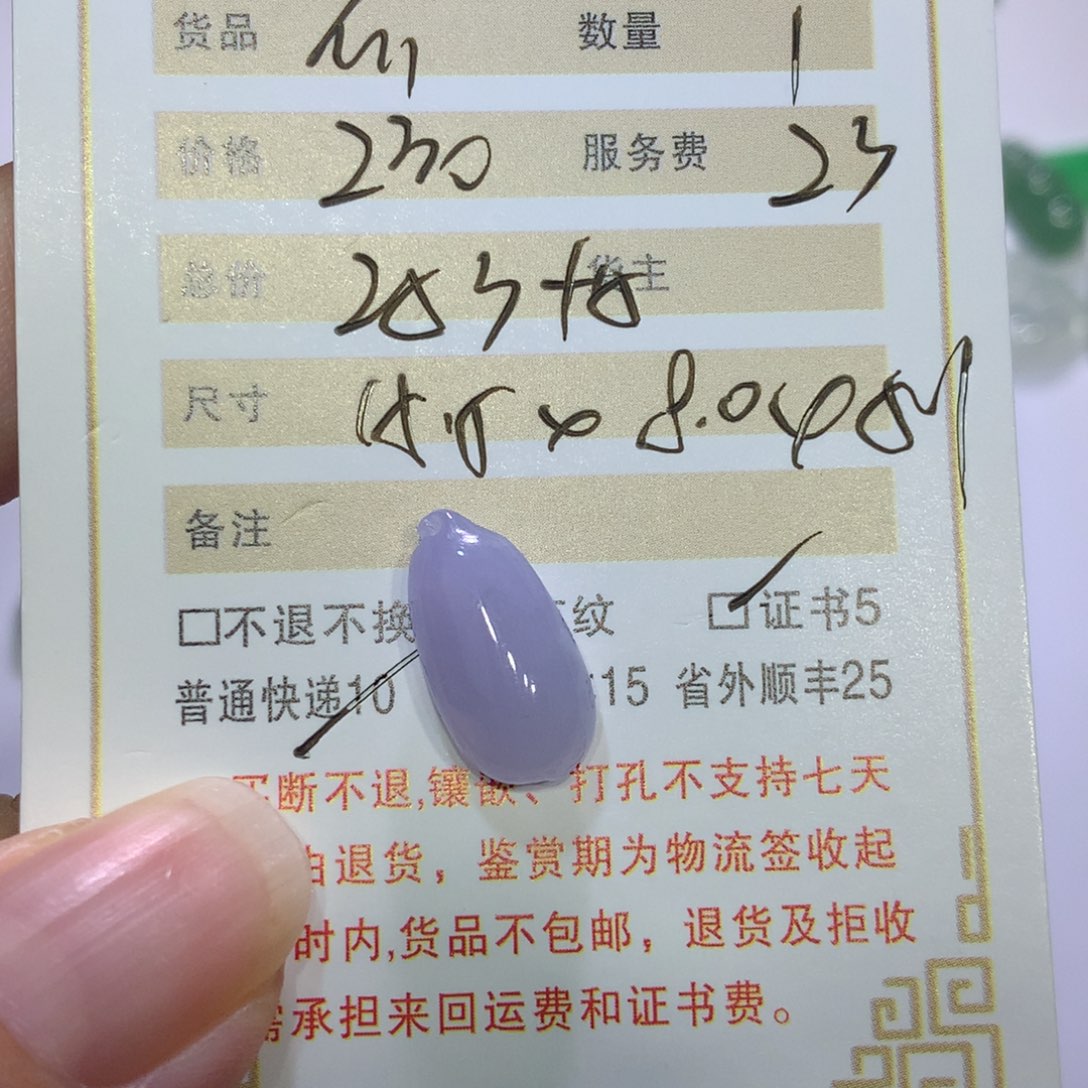 货品 数量 1
价格 230 服务费 23
总价 货主
尺寸
备注
□不退不换 纹 □证书5
普通快递10 15 省外顺丰25
买断不退,镶嵌、打孔不支持七天
由退货，鉴赏期为物流签收起
时内,货品不包邮，退货及拒收
需承担来回运费和证书费。